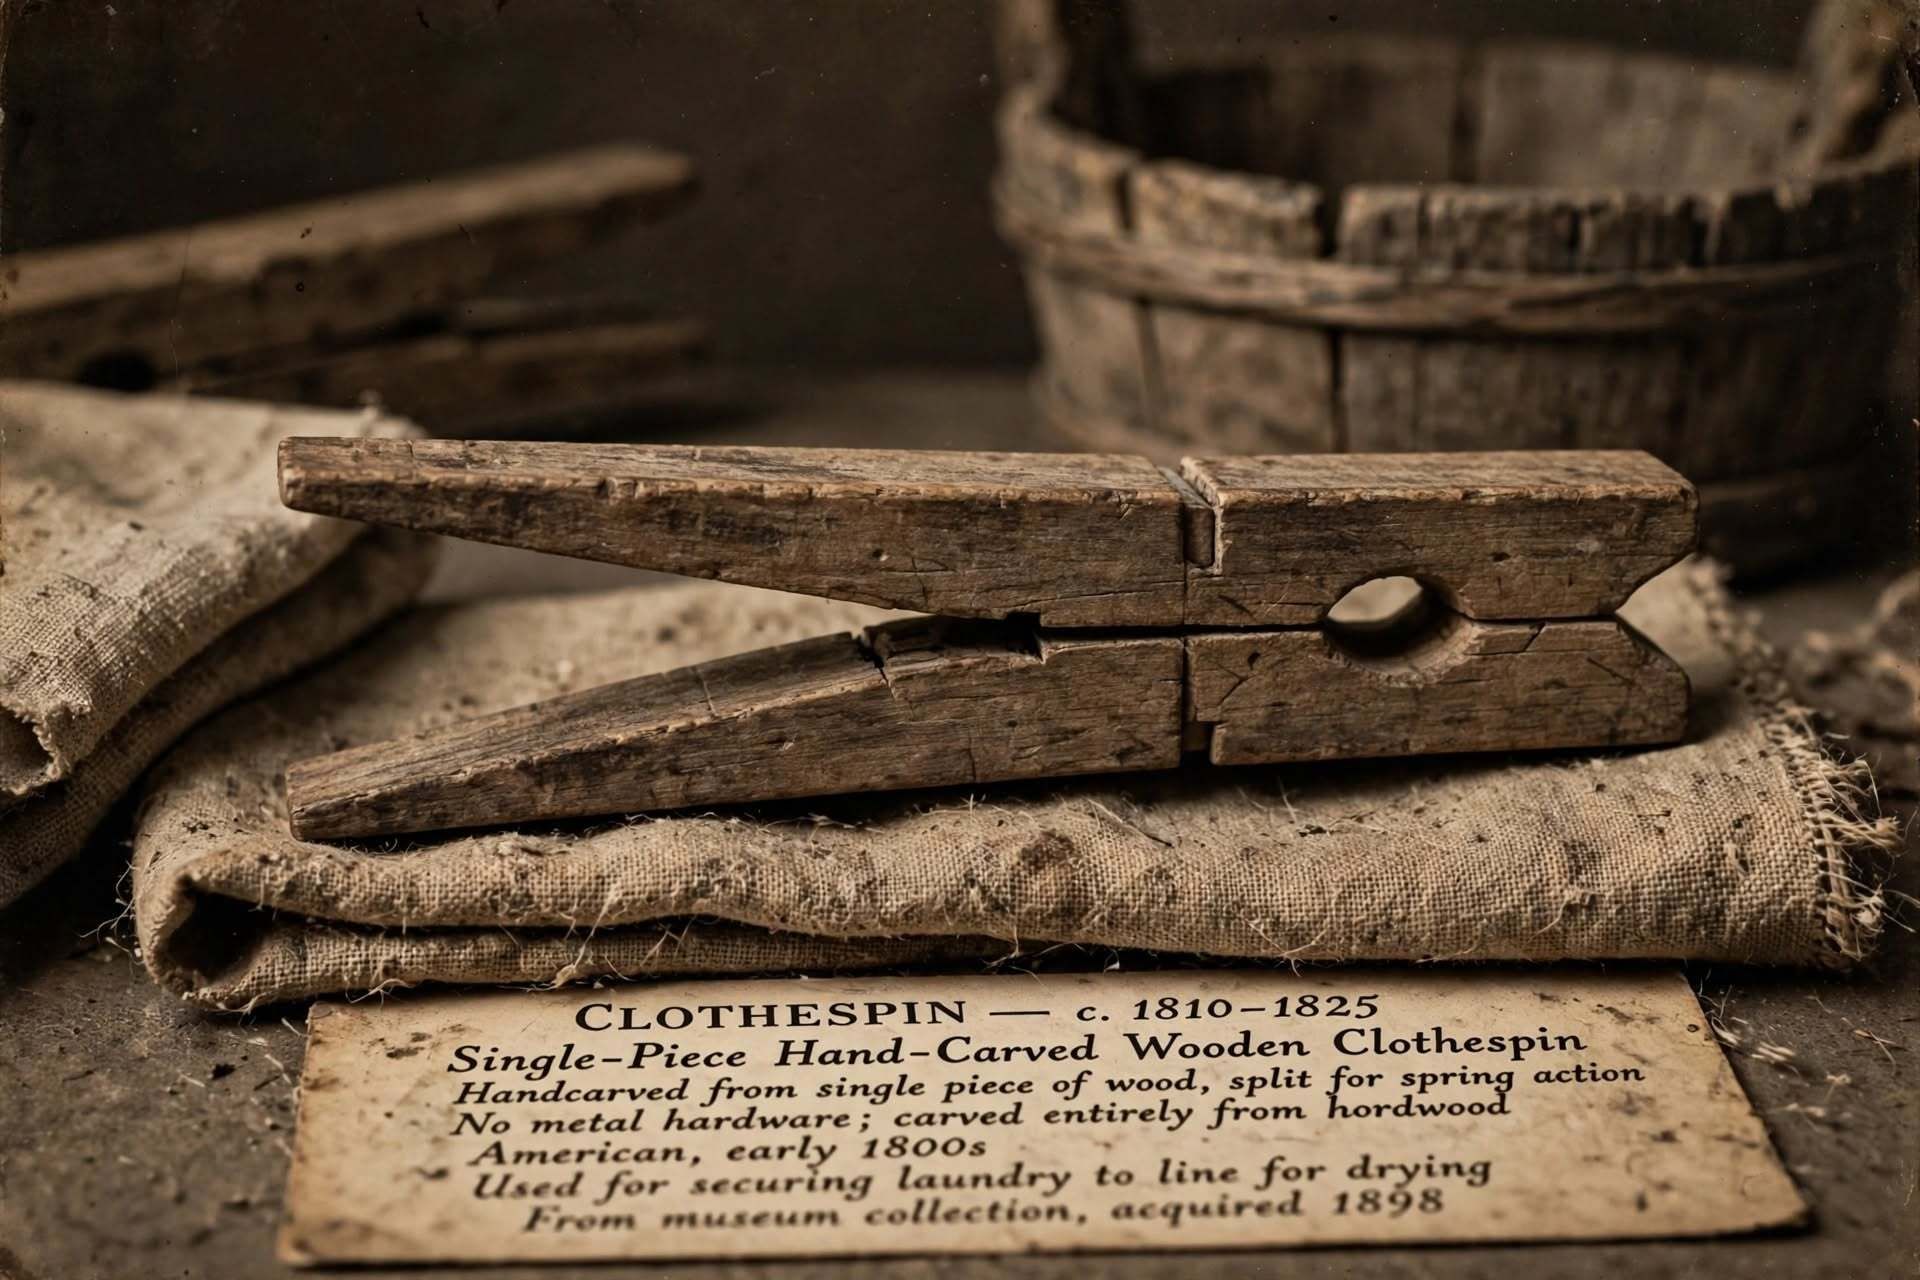 CLOTHESPIN — c. 1810–1825
Single-Piece Hand-Carved Wooden Clothespin
Handcarved from single piece of wood, split for spring action
No metal hardware; carved entirely from hordwood
American, early 1800s
Used for securing laundry to line for drying
From museum collection, acquired 1898